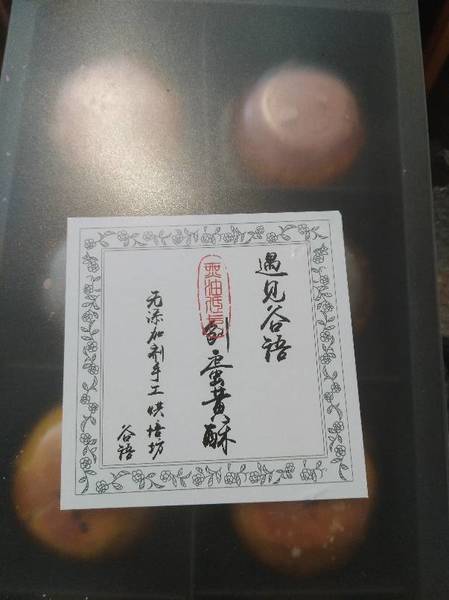 遇见谷语
创蛋黄酥
无添加剂手工烘培坊
谷语